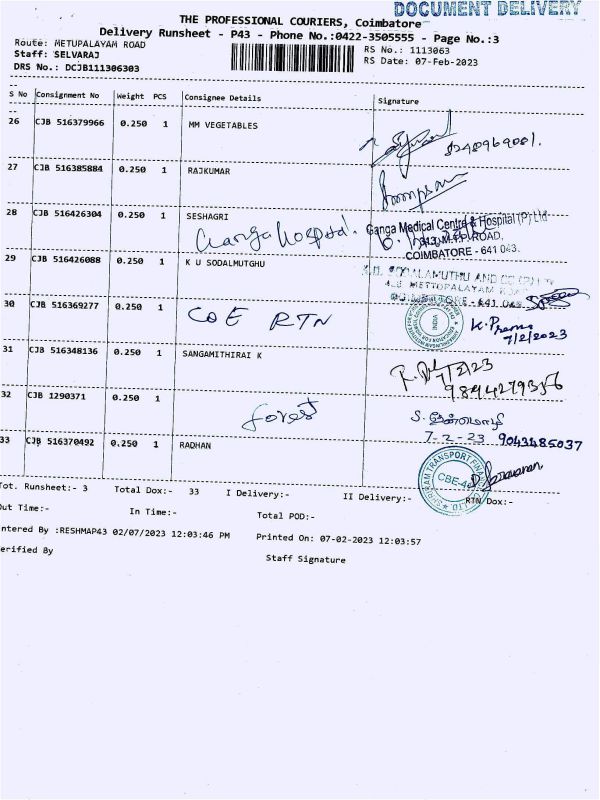 DOCUMENT DELIVERY
THE PROFESSIONAL COURIERS, Coimbatore
Delivery Runsheet - P43 - Phone No.:0422-3505555 - Page No.:3
Route: METUPALAYAM ROAD
RS No.: 1113063
Staff: SELVARAJ
RS Date: 07-Feb-2023
DRS No.: DCJB111306303
S No Consignment No Weight PCS Consignee Details Signature
26 CJB 516379966 0.250 1 MM VEGETABLES
27 CJB 516385884 0.250 1 RAJKUMAR
28 CJB 516426304 0.250 1 SESHAGRI
Ganga Hospital.
Ganga Medical Centre & Hospital (P) Ltd
313, M.T.P. ROAD,
COIMBATORE - 641 043.
29 CJB 516426088 0.250 1 K U SODALMUTGHU
K.U. SODALAMUTHU AND CO (P) LTD
METTUPALAYAM ROAD
30 CJB 516369277 0.250 1
COE RTN
K. Prema
7/2/2023
31 CJB 516348136 0.250 1 SANGAMITHIRAI K
7/2/23
9894279356
32 CJB 1290371 0.250 1
forest
7-2-23 9043485037
33 CJB 516370492 0.250 1 RADHAN
SHRIRAM TRANSPORT FINANCE
CBE-4
LTD.
Tot. Runsheet:- 3 Total Dox:- 33 I Delivery:- II Delivery:- RTN Dox:-
Out Time:- In Time:- Total POD:-
ntered By :RESHMAP43 02/07/2023 12:03:46 PM Printed On: 07-02-2023 12:03:57
erified By Staff Signature